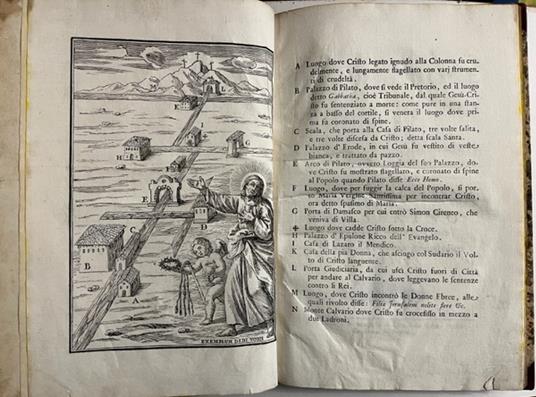 N
E
H
I
G
F
E
D
C
B
A
EXEMPLUM DEDI VOBIS
A Luogo dove Cristo legato ignudo alla Colonna fu cru-
delmente, e lungamente flagellato con varj strumen-
ti di crudeltà.
B Palazzo di Pilato, dove si vede il Pretorio, ed il luogo
detto Gabbatà, cioè Tribunale, dal quale Gesù Cri-
sto fu sentenziato a morte: come pure in una stan-
za a basso del cortile, si venera il luogo dove pri-
ma fu coronato di spine.
C Scala, che porta alla Casa di Pilato, tre volte salita,
e tre volte discesa da Cristo; detta scala Santa.
D Palazzo d'Erode, in cui Gesù fu vestito di veste
bianca, e trattato da pazzo.
E Arco di Pilato, ovvero Loggia del suo Palazzo, do-
ve Cristo fu mostrato flagellato, e coronato di spine
al Popolo quando Pilato disse Ecce Homo.
F Luogo, dove per fuggir la calca del Popolo, si por-
tò Maria Vergine Santissima per incontrar Cristo,
ora detto spasimo di Maria.
G Porta di Damasco per cui entrò Simon Cireneo, che
veniva di Villa.
✠ Luogo dove cadde Cristo sotto la Croce.
H Palazzo d'Epulone Ricco dell'Evangelo.
I Casa di Lazaro il Mendico.
K Casa della pia Donna, che asciugò col Sudario il Vol-
to di Cristo languente.
L Porta Giudiciaria, da cui uscì Cristo fuori di Città
per andare al Calvario, dove leggevano le sentenze
contro li Rei.
M Luogo, dove Cristo incontrò le Donne Ebree, alle
quali rivolto disse: Filiæ Jerusalem nolite flere &c.
N Monte Calvario dove Cristo fu crocefisso in mezzo a
due Ladroni.